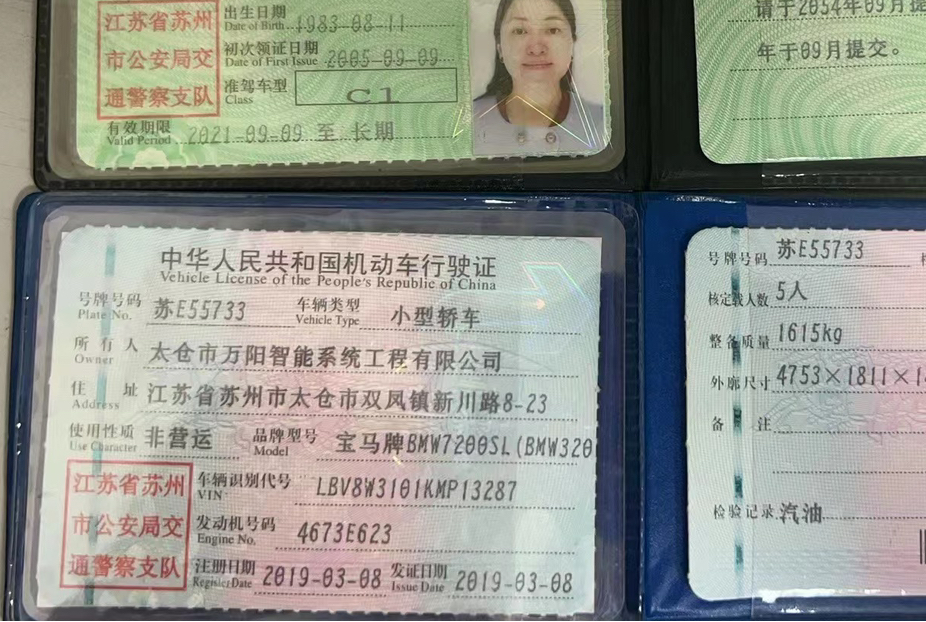 江苏省苏州
市公安局交
通警察支队
出生日期
Date of Birth 1983-08-11
初次领证日期
Date of First Issue 2005-09-09
准驾车型
Class C1
有效期限
Valid Period 2021-09-09 至 长期
请于2054年09月提
年于09月提交。
中华人民共和国机动车行驶证
Vehicle License of the People's Republic of China
号牌号码 苏E55733 车辆类型 小型轿车
Plate No. Vehicle Type
所有人 太仓市万阳智能系统工程有限公司
Owner
住址 江苏省苏州市太仓市双凤镇新川路8-23
Address
使用性质 非营运 品牌型号 宝马牌BMW7200SL(BMW320
Use Character Model
江苏省苏州
市公安局交
通警察支队
车辆识别代号 LBV8W3101KMP13287
VIN
发动机号码 4673E623
Engine No.
注册日期 2019-03-08 发证日期 2019-03-08
Register Date Issue Date
号牌号码 苏E55733
核定载人数 5人
整备质量 1615kg
外廓尺寸 4753×1811×1
备注
检验记录 汽油